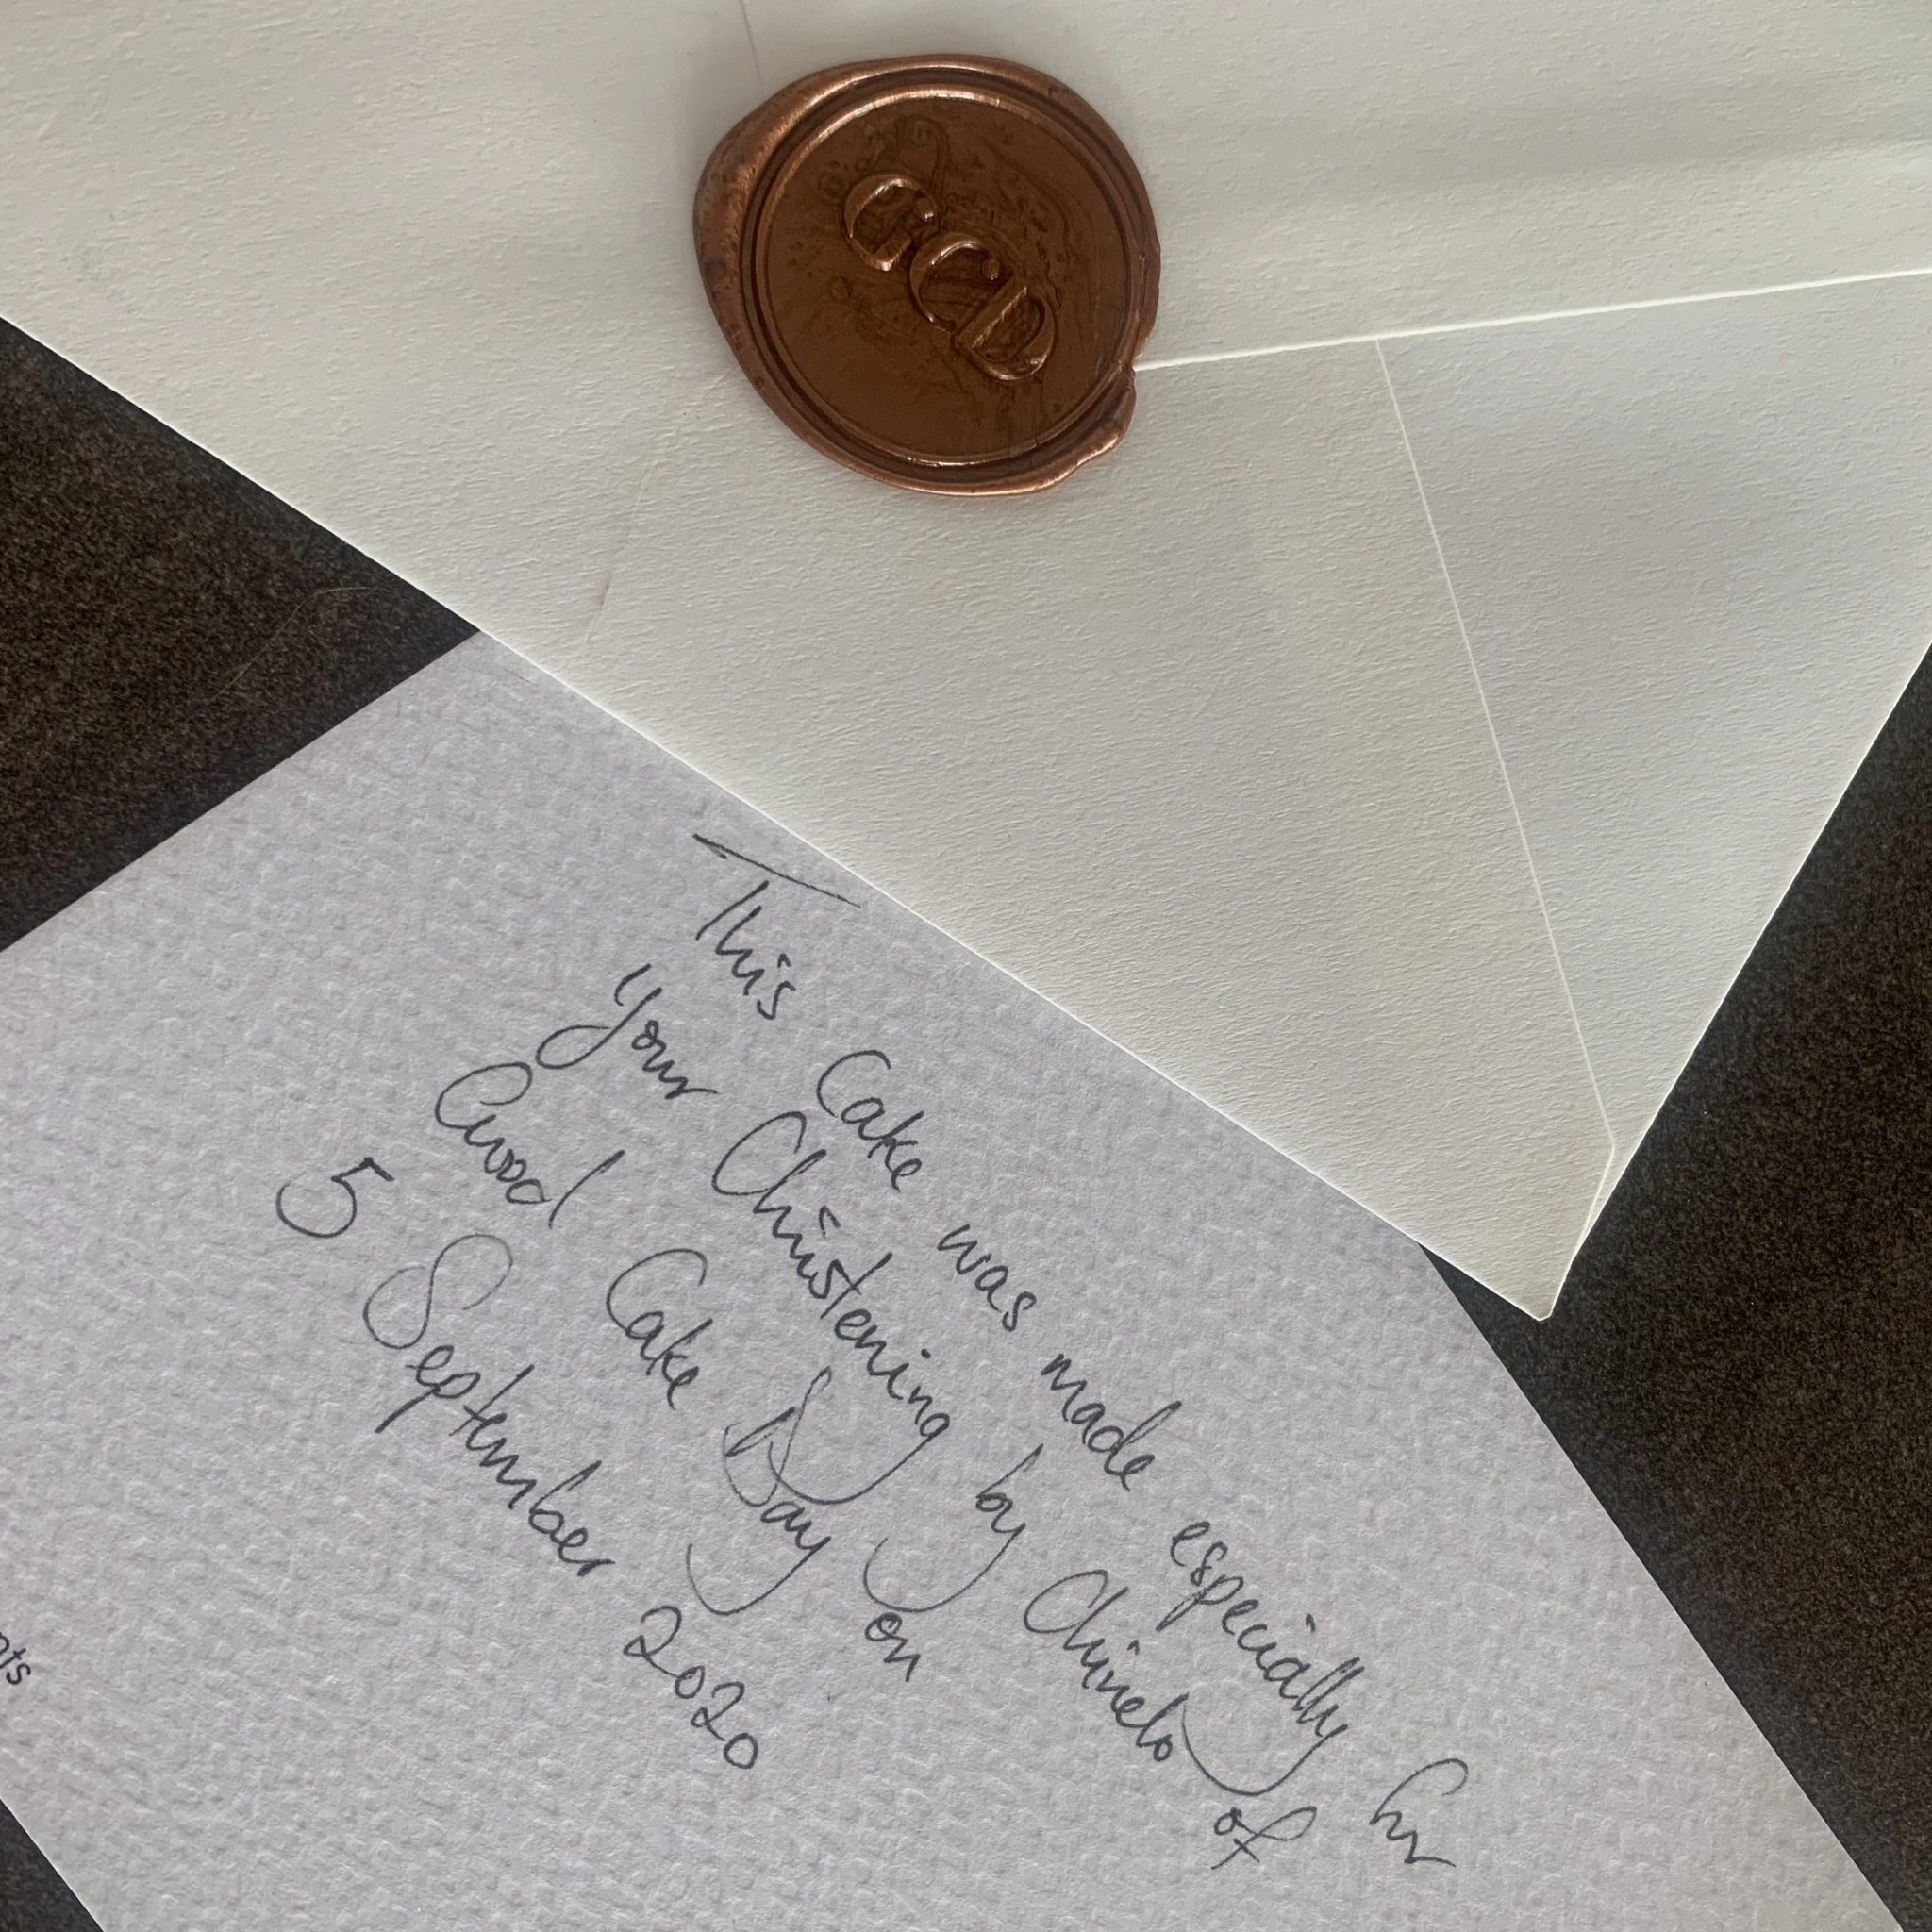 GCD
This Cake was made especially for
your Christening by Chinelo of
Good Cake Day on
5 September 2020
nts